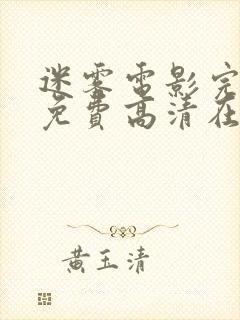 迷雾电影完
免费高清在
黄玉清